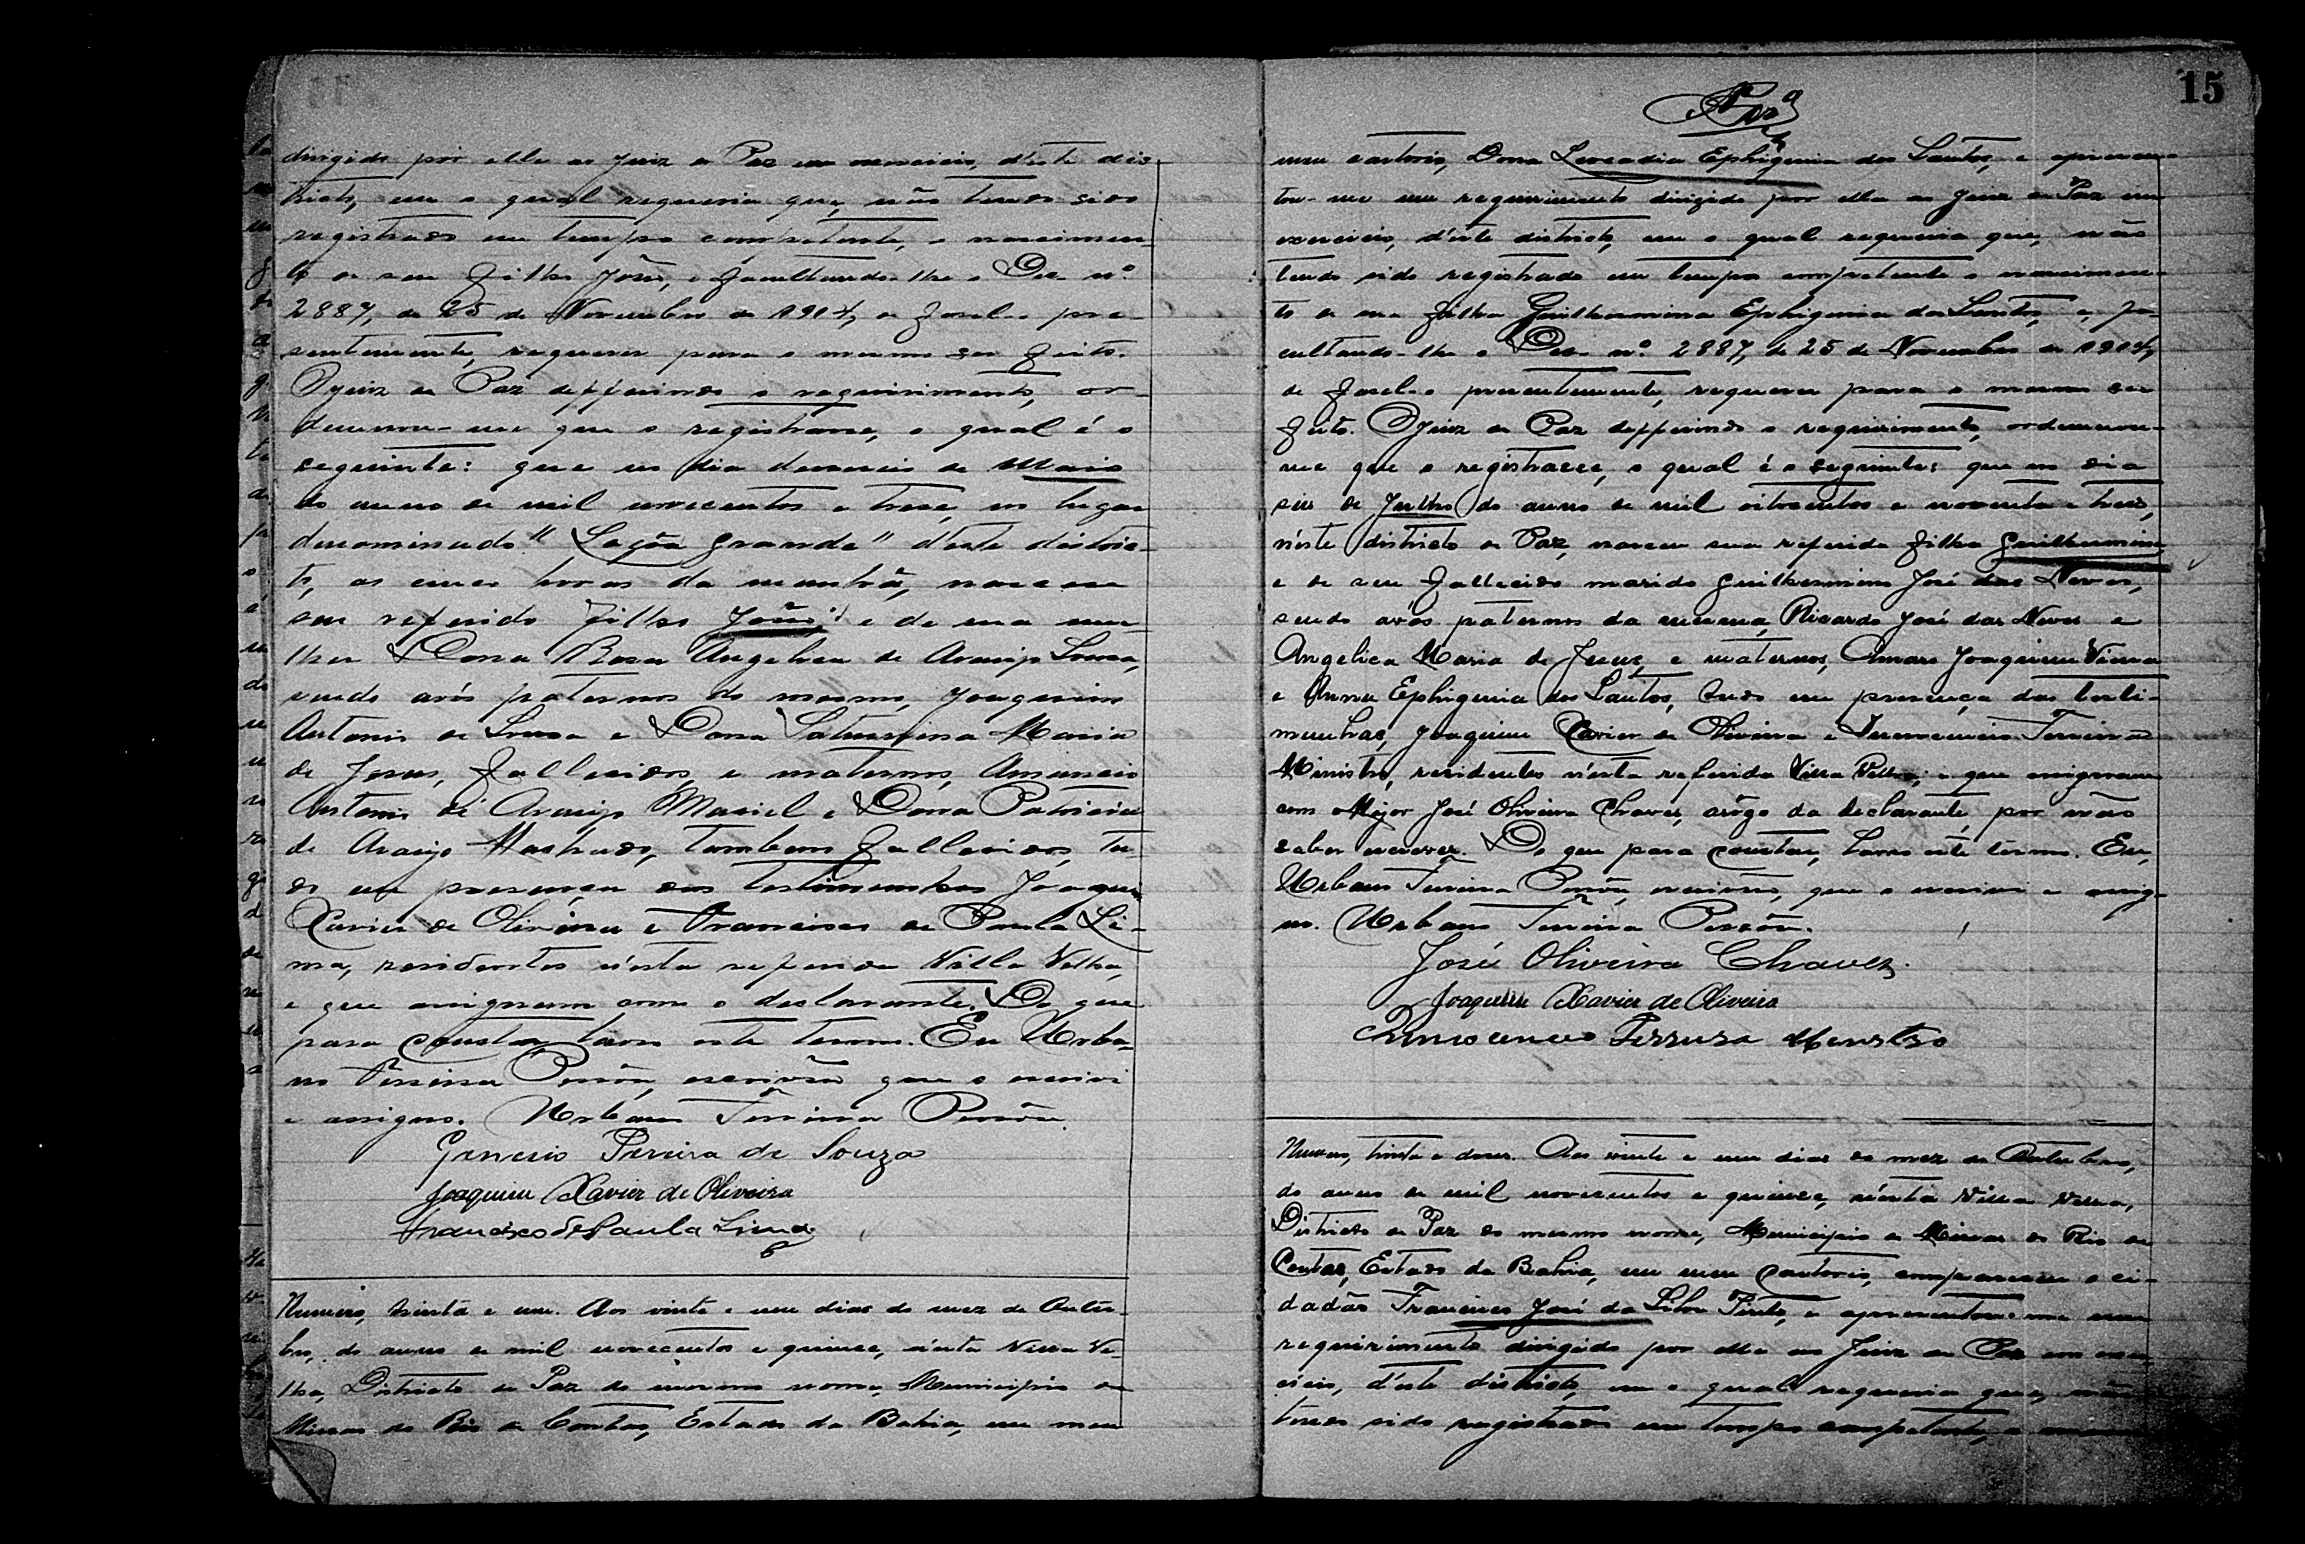 dirigido por elle ao Juiz de Paz em exercicio, d'este dis-
tricto, em o qual requeria que, não tendo sido
registrado em tempo competente, o nascimen-
to de seu filho João, e facultando-lhe o Dec. nº
2887, de 25 de Novembro de 1914, de fazel-o pre-
sentemente, requerer para o mesmo ser feito.
O Juiz de Paz defferindo o requirimento, or-
denou-me que o registrasse, o qual é o
seguinte: que no dia de Maio
do anno de mil novecentos e treze, no lugar
denominado "Lagôa Grande" d'este distric-
to, as cinco horas da manhã, nasceu
seu referido filho João; e de sua mu-
lher Dona Rosa Angelica de Araujo Souza,
sendo avós paternos do mesmo, Joaquim
Antonio de Souza e Dona Saturnina Maria
de Jesus, fallecidos, e maternos, Amancio
Antonio de Araujo Maciel e Dona Patricia
de Araujo Machado, tambem fallecidos, tu-
do em presença das testimunhas Joaquim
Xavier de Oliveira e Francisco de Paula Li-
ma, residentes n'esta referida Villa Velha,
e que assignaram com o declarante. Do que
para constar, lavro este termo. Eu Urba-
no Ferreira Persôa, escrivão que o escrevi
e assigno. Urbano Ferreira Persôa.
Genesio Pereira de Souza
Joaquim Xavier de Oliveira
Francisco de Paula Lima
Numero, trinta e um. Aos vinte e um dias do mez de Outu-
bro, do anno de mil novecentos e quinze, n'esta Villa Ve-
lha, Districto de Paz do mesmo nome, Municipio de
Minas do Rio de Contas, Estado da Bahia, em meu
15
meu cartorio, Dona Leocadia Ephigenia dos Santos, e apresen-
tou-me um requirimento dirigido por ella ao Juiz de Paz em
exercicio, d'este districto, em o qual requeria que, não
tendo sido registrado em tempo competente o nascimen-
to de sua filha Guilhermina Ephigenia dos Santos, e, fa-
cultando-lhe o Dec. nº. 2887, de 25 de Novembro de 1914,
de fazel-o presentemente, requerer para o mesmo ser
feito. O Juiz de Paz defferindo o requirimento, ordenou-
me que o registrasse, o qual é o seguinte: que no dia
seis de Julho do anno de mil oitocentos e noventa e tres,
n'este districto de Paz, nasceu sua referida filha Guilhermina
e de seu fallecido marido Guilhermino José das Neves,
sendo avós paternos da mesma, Ricardo José das Neves e
Angelica Maria de Jesus, e maternos, Amaro Joaquim Vieira
e Anna Ephigenia dos Santos, tudo em presença das testi-
munhas, Joaquim Xavier de Oliveira e Innocencio Ferreira
Ministro, residentes n'esta referida Villa Velha, e que assignaram
com o Major José Oliveira Chaves, arôgo da declarante, por não
saber escrever. Do que para constar, lavro este termo. Eu,
Urbano Ferreira Persôa, escrivão, que o escrevi e assig-
no. Urbano Ferreira Persôa.
José Oliveira Chaves.
Joaquim Xavier de Oliveira
Innocencio Ferreira Ministro
Numero, trinta e dous. Aos vinte e um dias do mez de Outubro,
do anno de mil novecentos e quinze, n'esta Villa Velha,
Districto de Paz do mesmo nome, Municipio de Minas do Rio de
Contas, Estado da Bahia, em meu Cartorio, compareceu o ci-
dadão Francisco José da Silva Pinto, e apresentou-me um
requirimento dirigido por elle ao Juiz de Paz em exer-
cicio, d'este districto, em o qual requeria que, não
tendo sido registrado em tempo competente, o